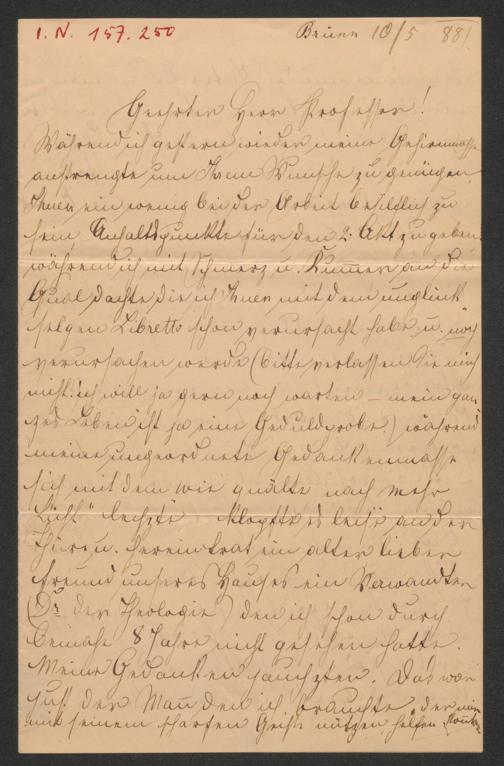 I. N. 157.250
Brünn 10/5 881
Geehrter Herr Professor!
Während ich gestern wieder meine Gehirnmasse
anstrengte um Ihrem Wunsche zu genügen
Ihnen ein wenig bei der Arbeit behilflich zu
sein, Anhaltspunkte für den 2. Akt zu geben
während ich mit Schmerz u. Kummer an die
Qual dachte die ich Ihnen mit dem unglück
seligen Libretto schon verursacht habe u. noch
verursachen werde (bitte verlassen Sie mich
nicht! ich will ja gern noch warten – mein gan
zes Leben ist ja eine Geduldprobe!) während
meine ungeordnete Gedankenmasse
sich mit dem wie quälte nach mehr
"Licht" lechzte klopfte es leise an der
Thüre u. herein trat ein alter lieber
Freund unseres Hauses ein Verwandter
(Dr. der Theologie) den ich schon durch
beinahe 8 Jahre nicht gesehen hatte.
Meine Gedanken jauchzten. Das war
just der Mann den ich brauchte, der mir
mit seinem scharfen Geiste nützen helfen konnte